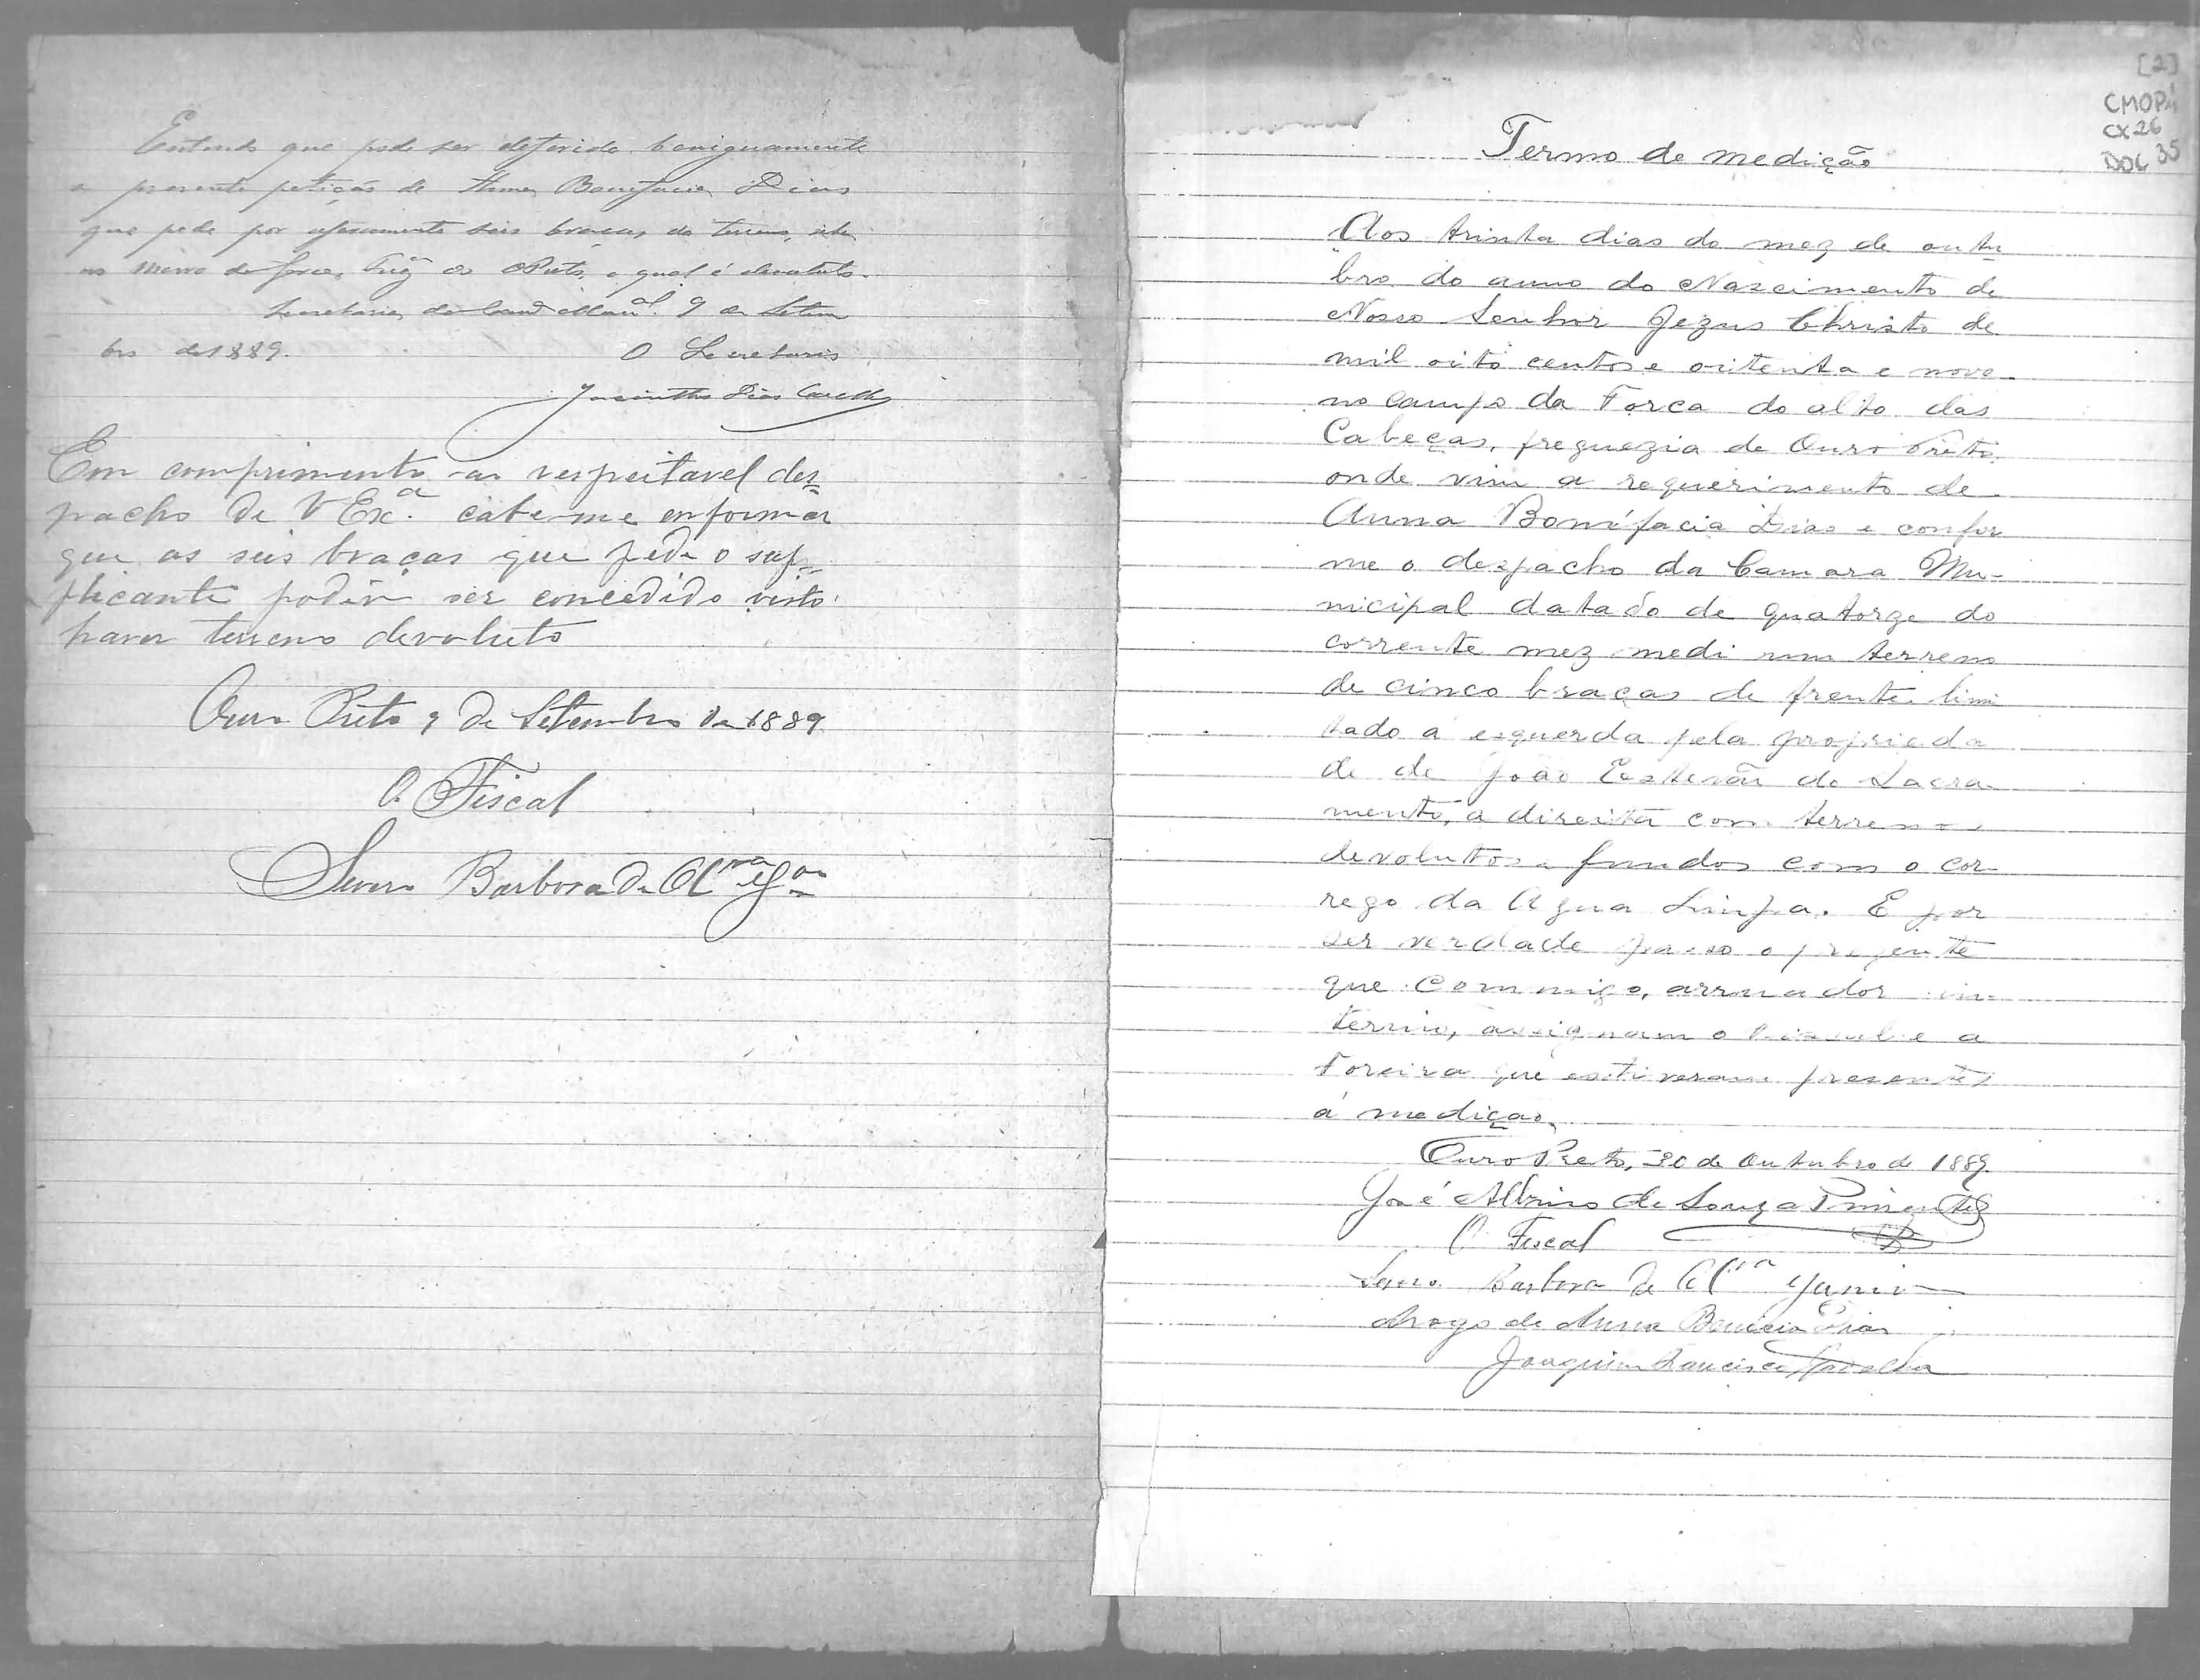 Entendo que pode ser deferido benignamente
a presente petição de Anna Bonifacia Dias
que pede por aforamento seis braças de terreno, sito
no Morro da Forca, Freg.ª do O Preto, o qual é devoluto.
Secretaria da Cam.ª Mun.al 9 de Setem
bro de 1889.
O Secretario
Jacintho Dias
Em comprimento ao respeitavel des=
pacho de V Ex.ª cabe-me enformar
que as seis braças que pede o sup=
plicante podem ser concedido visto
haver terreno devoluto
Ouro Preto 9 de Setembro de 1889
O Fiscal
Severo Barbosa de Olra Jor
[2]
CMOP
CX 26
DOC 35
Termo de medição
Aos trinta dias do mez de outu
bro do anno do Nascimento de
Nosso Senhor Jezus Christo de
mil oito centos e oitenta e nove
no campo da Forca do alto das
Cabeças, freguezia de Ouro Preto,
onde vim a requerimento de
Anna Bonifacia Dias e confor
me o despacho da Camara Mu-
nicipal datado de quatorze do
corrente mez medi um terreno
de cinco braças de frente limi
tado a esquerda pela proprieda
de de João Estevão do Sacra
mento, a direita com terrenos
devolutos e fundos com o cor-
rego da Agua Limpa. E por
ser verdade passo o prezente
que commigo, arruador in-
terino, assignam o Fiscal e a
Foreira que estiveram presentes
á medição.
Ouro Preto, 30 de Outubro de 1889.
José Albino de Souza Pimentel
O Fiscal
Severo Barbosa de Olra Junior
Arogo de Anna Bonicia Dias
Joaquim Francisco